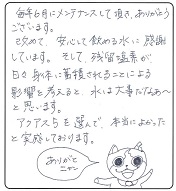 毎年6月にメンテナンスして頂き、ありがとう
ございます。
改めて、安心して飲める水に感謝
しています。そして、残留塩素が
日々身体に蓄積されることによる
影響を考えると、水は大事だなぁ〜
と思います。
アクアス5を選んで、本当によかった
と実感しております。
ありがと
ニャン